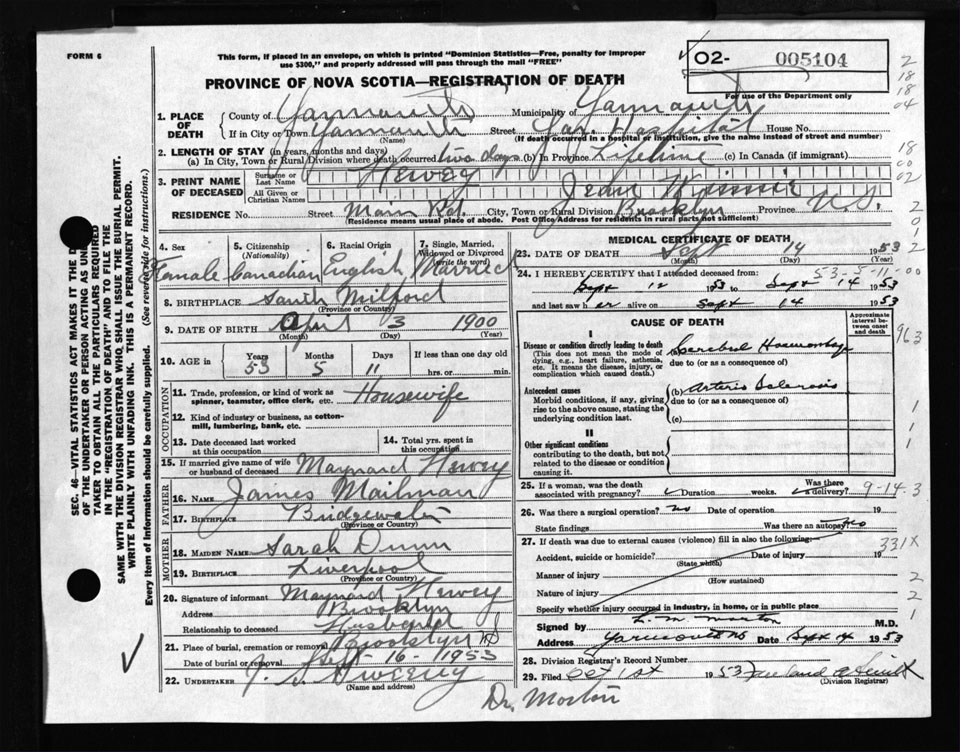 FORM 6
This form, if placed in an envelope, on which is printed "Dominion Statistics—Free, penalty for improper
use $300," and properly addressed will pass through the mail "FREE"
02- 005104
For use of the Department only
PROVINCE OF NOVA SCOTIA—REGISTRATION OF DEATH
1. PLACE OF DEATH
County of Yarmouth Municipality of Yarmouth
If in City or Town Yarmouth Street Yar. Hospital House No.
(Name) (If death occurred in a hospital or institution, give the name instead of street and number)
2. LENGTH OF STAY (in years, months and days)
(a) In City, Town or Rural Division where death occurred two days (b) In Province Lifetime (c) In Canada (if immigrant)
3. PRINT NAME OF DECEASED
Surname or Last Name Hervey
All Given or Christian Names Jean Winnie
RESIDENCE No. Street Main Rd. City, Town or Rural Division Brooklyn Province N.S.
Residence means usual place of abode. Post Office Address for residents in rural parts not sufficient)
4. Sex Female
5. Citizenship (Nationality) Canadian
6. Racial Origin English
7. Single, Married, Widowed or Divorced (write the word) Married
8. BIRTHPLACE South Milford
(Province or Country)
9. DATE OF BIRTH April 3 1900
(Month) (Day) (Year)
10. AGE in Years 53 Months 5 Days 11 If less than one day old hrs. or min.
11. Trade, profession, or kind of work as spinner, teamster, office clerk, etc. Housewife
12. Kind of industry or business, as cotton-mill, lumbering, bank, etc.
13. Date deceased last worked at this occupation
14. Total yrs. spent in this occupation
15. If married give name of wife or husband of deceased Maynard Hervey
FATHER
16. NAME James Mailman
17. BIRTHPLACE Bridgewater
(Province or Country)
MOTHER
18. MAIDEN NAME Sarah Dunn
19. BIRTHPLACE Liverpool
(Province or Country)
20. Signature of informant Maynard Hervey
Address Brooklyn
Relationship to deceased Husband
21. Place of burial, cremation or removal Brooklyn
Date of burial or removal Sept 16 - 1953
22. UNDERTAKER J. S. Sweeny
(Name and address)
MEDICAL CERTIFICATE OF DEATH
23. DATE OF DEATH Sept 14 1953
(Month) (Day)
53-5-11-00
24. I HEREBY CERTIFY that I attended deceased from:
Sept 12 1953 to Sept 14 1953
and last saw her alive on Sept 14 1953
CAUSE OF DEATH
Approximate interval between onset and death
I
Disease or condition directly leading to death
(This does not mean the mode of dying, e.g., heart failure, asthenia, etc. It means the disease, injury, or complication which caused death.)
(a) Cerebral Haemorrhage
due to (or as a consequence of)
Antecedent causes
Morbid conditions, if any, giving rise to the above cause, stating the underlying condition last.
(b) Arterio Sclerosis
due to (or as a consequence of)
(c)
II
Other significant conditions
contributing to the death, but not related to the disease or condition causing it.
25. If a woman, was the death associated with pregnancy? Duration weeks. Was there a delivery?
9-14.3
26. Was there a surgical operation? no Date of operation 19
State findings Was there an autopsy? no
27. If death was due to external causes (violence) fill in also the following:
331X
Accident, suicide or homicide? Date of injury 19
(State which)
Manner of injury
(How sustained)
Nature of injury
Specify whether injury occurred in industry, in home, or in public place
Signed by L. M. Morton M.D.
Address Yarmouth NS Date Sept 14 1953
28. Division Registrar's Record Number
29. Filed Oct 1st 1953
(Division Registrar)
Dr. Morton
SEC. 46—VITAL STATISTICS ACT MAKES IT THE
OF THE UNDERTAKER OR PERSON ACTING AS UN
TAKER TO OBTAIN ALL THE PARTICULARS REQUIRED
IN THE "REGISTRATION OF DEATH" AND TO FILE THE
SAME WITH THE DIVISION REGISTRAR WHO SHALL ISSUE THE BURIAL PERMIT.
WRITE PLAINLY WITH UNFADING INK. THIS IS A PERMANENT RECORD.
Every item of Information should be carefully supplied. (See reverse side for instructions.)
2
18
18
04
18
00
02
2
0
1
2
963
1
1
1
2
2
1